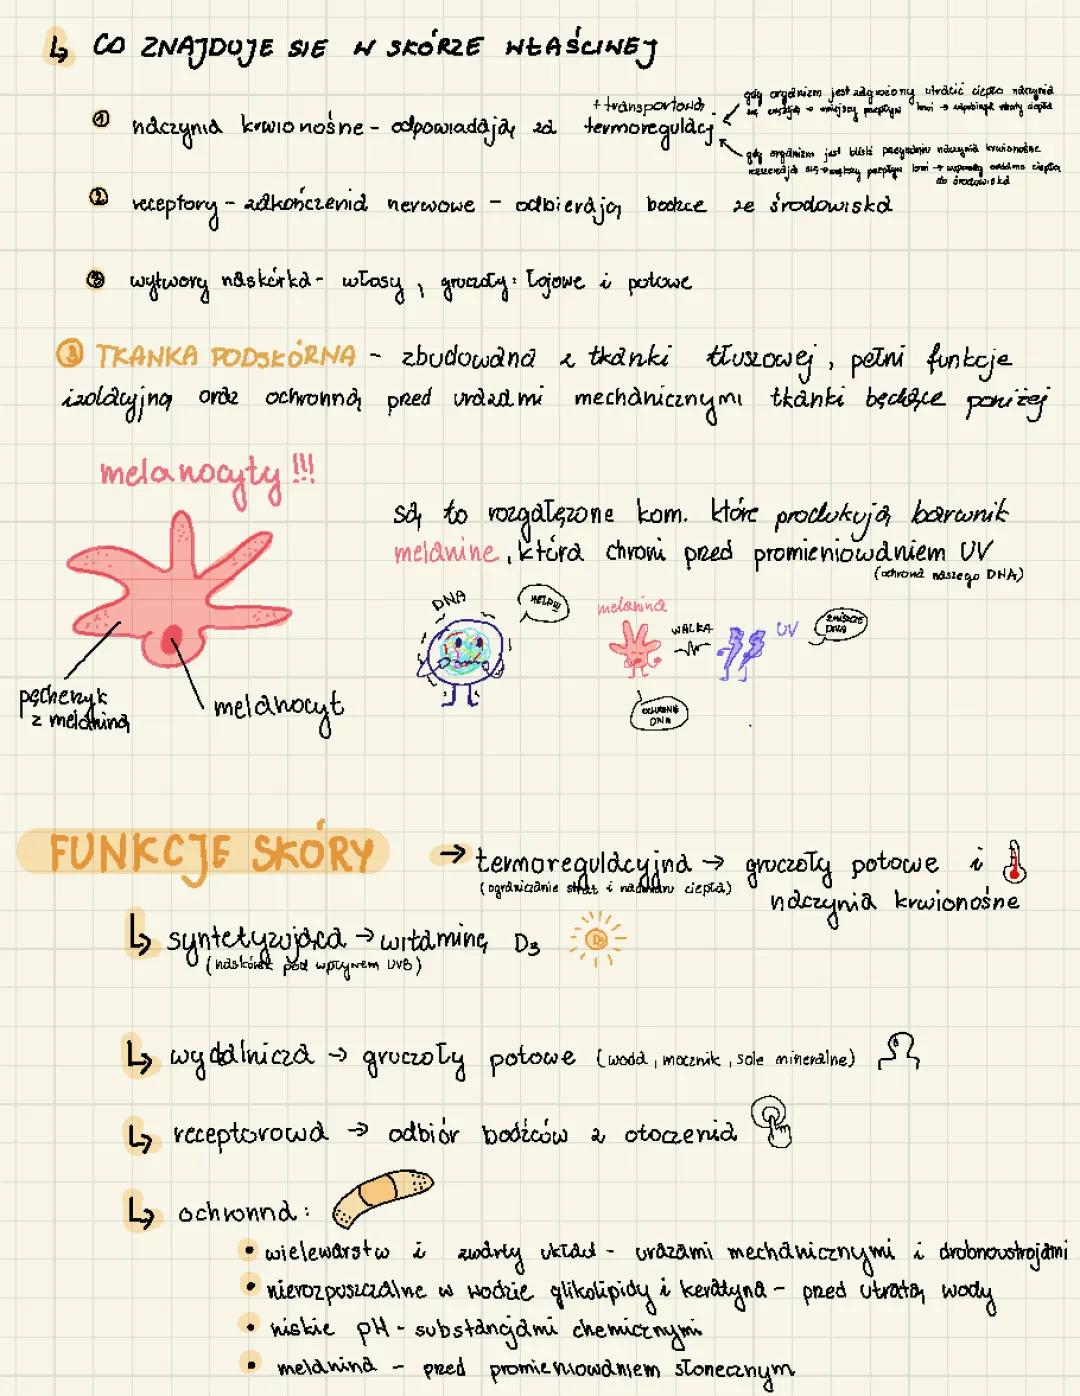 ↳ CO ZNAJDUJE SIĘ W SKÓRZE WŁAŚCIWEJ
① naczynia krwionośne - odpowiadają za termoregulacj
+ transportową
gdy organizm jest zagrożony utracić ciepło naczynia
się → mniejszy przepływ krwi → utraty ciepła
gdy organizm jest bliski przegrzaniu naczynia krwionośne
rozszerzają się → większy przepływ krwi → oddanie ciepła
do środowiska
② receptory - zakończenia nerwowe - odbierają bodźce ze środowiska
③ wytwory naskórka - włosy, gruczoły: łojowe i potowe
③ TKANKA PODSKÓRNA - zbudowana z tkanki tłuszowej, pełni funkcje
izolacyjną oraz ochronną przed urazami mechanicznymi tkanki będące poniżej
melanocyty !!!
są to rozgałęzone kom. które produkują barwnik
melaninę, która chroni przed promieniowaniem UV
(ochrona naszego DNA)
DNA
HELP!!!
melanina
WALKA
UV
ZNISZCZĘ DNA
OCHRONIĘ DNA
pęcherzyk
z melaniną
melanocyt
FUNKCJE SKÓRY
→ termoregulacyjna → gruczoły potowe i
(ograniczanie strat i nadmiaru ciepła)
naczynia krwionośne
↳ syntetyzująca → witaminę D3
D3
(naskórek pod wpływem UVB)
↳ wydalnicza → gruczoły potowe (woda, mocznik, sole mineralne)
↳ receptorowa → odbiór bodźców z otoczenia
↳ ochronna:
• wielewarstw i zwarty układ - urazami mechanicznymi i drobnoustrojami
• nierozpuszczalne w wodzie glikolipidy i keratyna - przed utratą wody
• niskie pH - substancjami chemicznymi
• melanina - przed promieniowaniem słonecznym